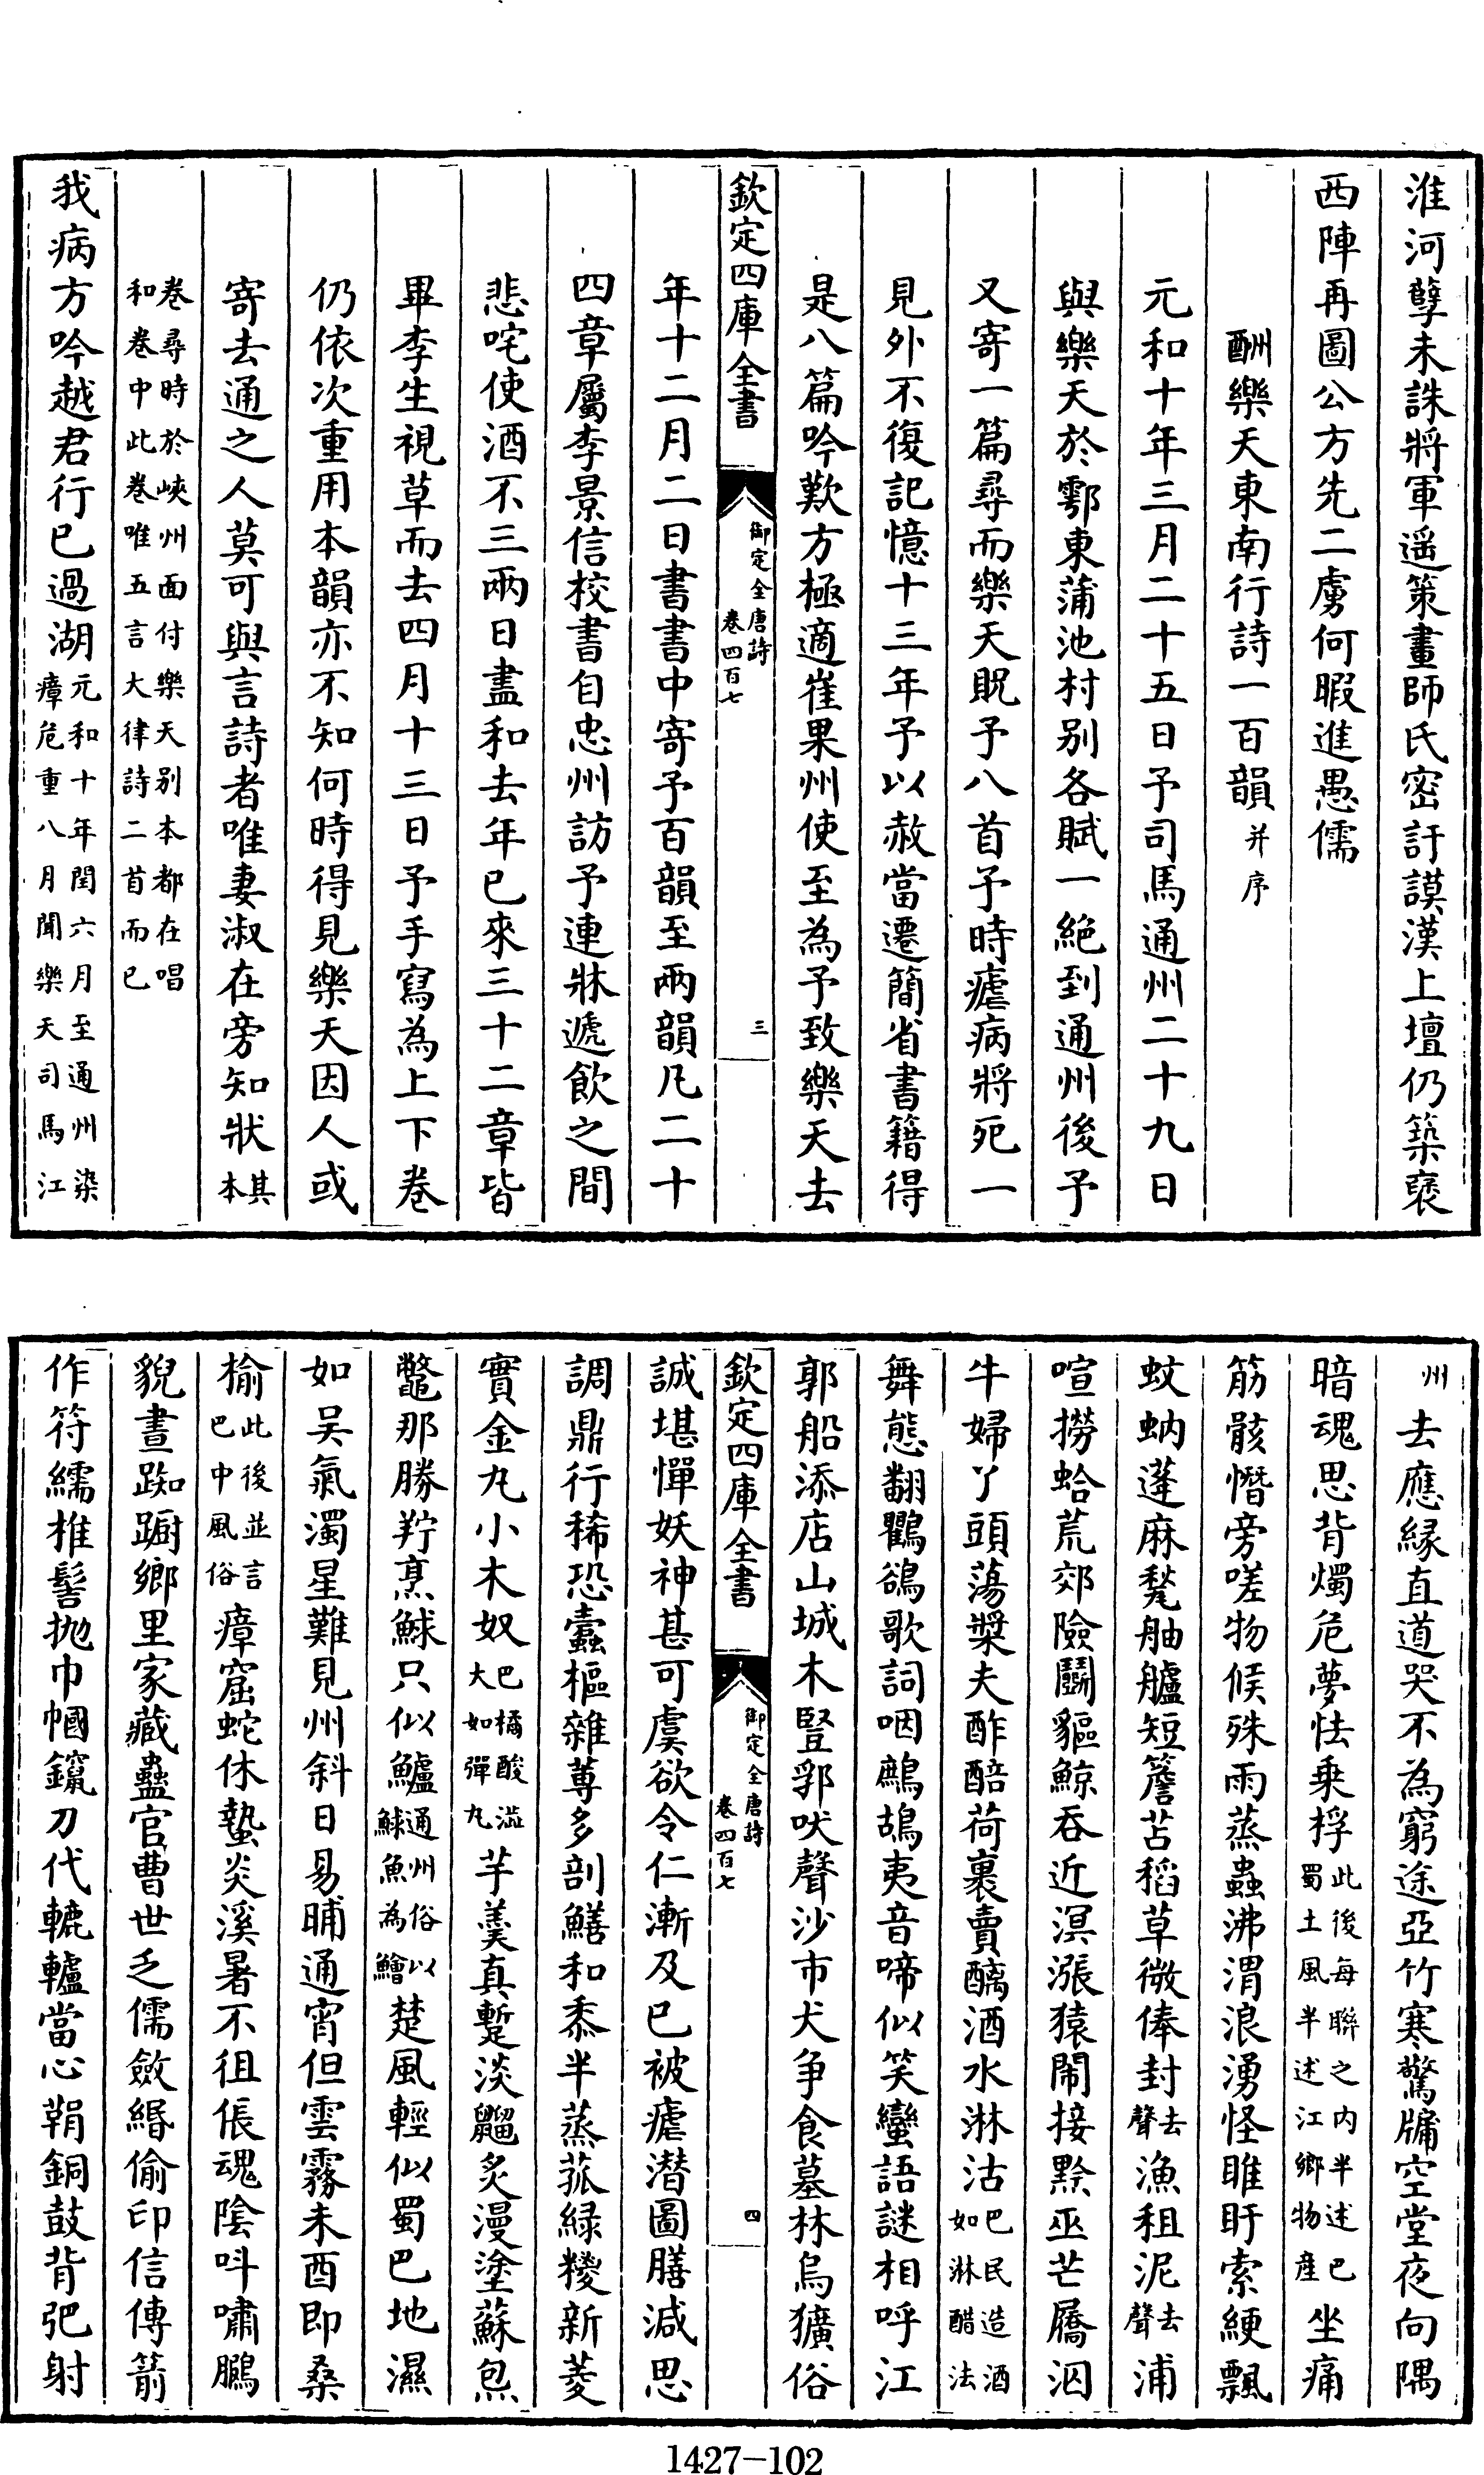 淮河孽未誅將軍遥策畫師氏密訏謨漢上壇仍築褒
西陣再圖公方先二虜何暇進愚儒
酬樂天東南行詩一百韻并序
元和十年三月二十五日予司馬通州二十九日
與樂天於鄠東蒲池村别各賦一絶到通州後予
又寄一篇尋而樂天貺予八首予時瘧病將死一
見外不復記憶十三年予以赦當遷簡省書籍得
是八篇吟歎方極適崔果州使至為予致樂天去
欽定四庫全書
御定全唐詩
卷四百七
三
年十二月二日書書中寄予百韻至兩韻凡二十
四章屬李景信校書自忠州訪予連牀遞飲之間
悲咤使酒不三兩日盡和去年已來三十二章皆
畢李生視草而去四月十三日予手寫為上下卷
仍依次重用本韻亦不知何時得見樂天因人或
寄去通之人莫可與言詩者唯妻淑在旁知狀其
本
卷尋時於峽州面付樂天别本都在唱
和卷中此卷唯五言大律詩二首而已
我病方吟越君行已過湖元和十年閏六月至通州染
瘴危重八月聞樂天司馬江
州
去應緣直道哭不為窮途亞竹寒驚牖空堂夜向隅
暗魂思背燭危夢怯乗桴此後每聯之内半述巴
蜀土風半述江鄉物産
坐痛
筋骸憯旁嗟物候殊雨蒸蟲沸渭浪湧怪睢盱索綆飄
蚊蚋蓬麻甃舳艫短簷苫稻草微俸封去聲漁租泥去聲浦
喧撈蛤荒郊險鬬貙鯨吞近溟漲猿鬧接黔巫芒屩泅
牛婦丫頭蕩槳夫酢醅荷裹賣醨酒水淋沽巴民造酒
如淋醋法
舞態翻鸜鵒歌詞咽鷓鴣夷音啼似笑蠻語謎相呼江
郭船添店山城木豎郛吠聲沙市犬争食墓林烏獷俗
欽定四庫全書
御定全唐詩
卷四百七
四
誠堪憚妖神甚可虞欲令仁漸及已被瘧潜圖膳減思
調鼎行稀恐蠹樞雜蓴多剖鱔和黍半蒸菰緑糭新菱
實金丸小木奴巴橘酸澁
大如彈丸
芋羹真蹔淡䶉炙漫塗蘇炰
鼈那勝羜烹鯄只似鱸通州俗以
鯄魚為鱠
楚風輕似蜀巴地濕
如吴氣濁星難見州斜日易晡通宵但雲霧未酉即桑
榆此後並言
巴中風俗
瘴窟蛇休蟄炎溪暑不徂倀魂陰叫嘯鵩
貌晝踟蹰鄉里家藏蠱官曹世乏儒斂緡偷印信傳箭
作符繻椎髻抛巾幗鑹刀代轆轤當心鞙銅鼓背弝射
1427-102